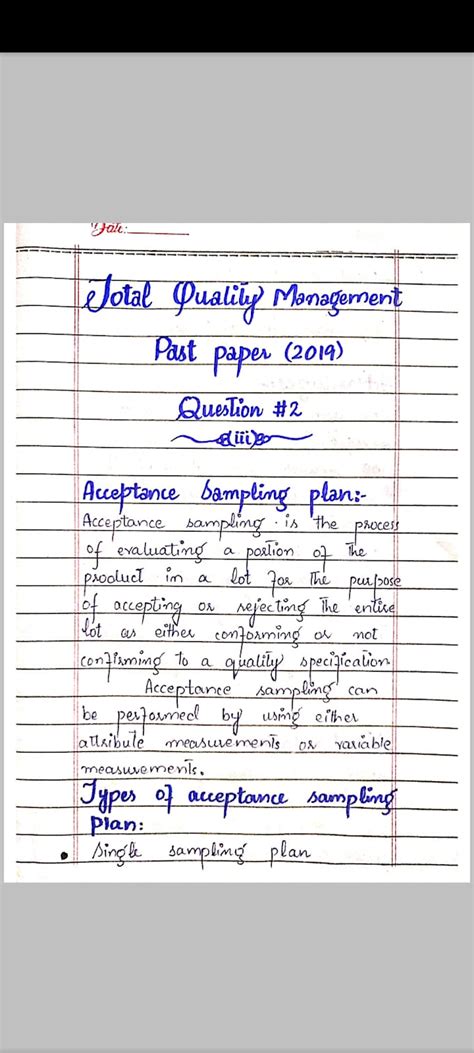 Date:
Total Quality Management
Past paper (2019)
Question #2
(iii)
Acceptance Sampling plan:-
Acceptance sampling is the process
of evaluating a portion of the
product in a lot for the purpose
of accepting or rejecting the entire
lot as either conforming or not
confirming to a quality specification
Acceptance sampling can
be performed by using either
attribute measurements or variable
measurements.
Types of acceptance sampling
Plan:
• Single sampling plan